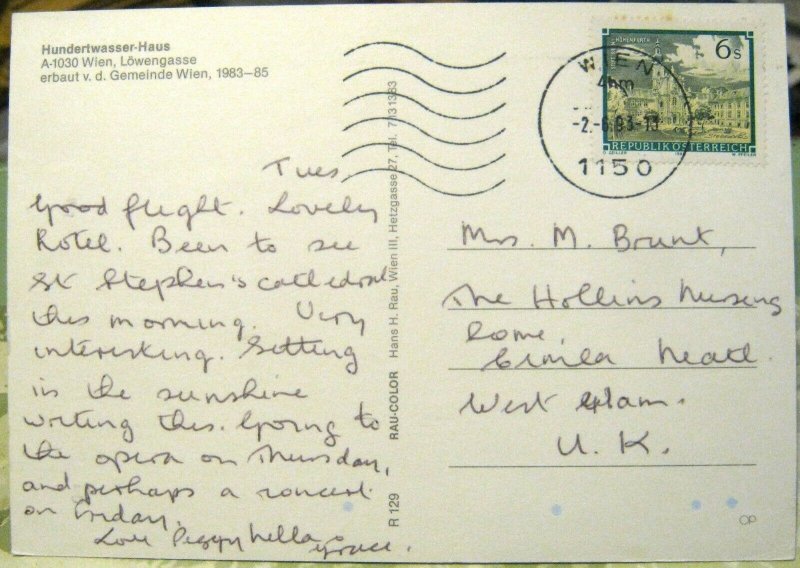 Hundertwasser-Haus
A-1030 Wien, Löwengasse
erbaut v. d. Gemeinde Wien, 1983–85
Tues
Good flight. Lovely
Hotel. Been to see
St Stephen's cathedral
this morning. Very
interesting. Sitting
in the sunshine
writing this. Going to
the opera on Thursday,
and perhaps a concert
on Friday.
Love Peggy
Grace.
R 129 RAU-COLOR Hans H. Rau, Wien III, Hetzgasse 27, Tel. 7131363
WIEN
1150
6s
REPUBLIK ÖSTERREICH
Mrs. M. Brunt,
The Hollins Nursing
Home,
Neath.
West Glam.
U. K.